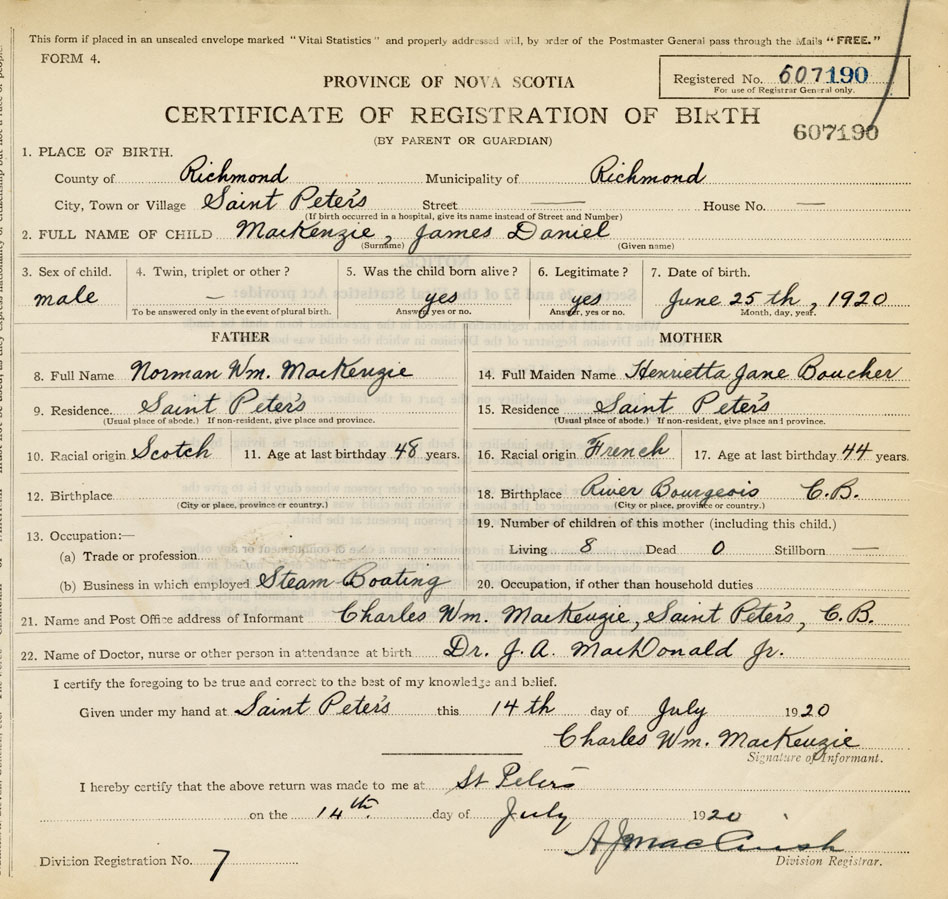 This form if placed in an unsealed envelope marked "Vital Statistics" and properly addressed will, by order of the Postmaster General pass through the Mails "FREE."
FORM 4.
Registered No. 607190
For use of Registrar General only.
PROVINCE OF NOVA SCOTIA
CERTIFICATE OF REGISTRATION OF BIRTH
607190
(BY PARENT OR GUARDIAN)
1. PLACE OF BIRTH.
County of Richmond Municipality of Richmond
City, Town or Village Saint Peter's Street — House No. —
(If birth occurred in a hospital, give its name instead of Street and Number)
2. FULL NAME OF CHILD MacKenzie, James Daniel
(Surname) (Given name)
3. Sex of child. 4. Twin, triplet or other? 5. Was the child born alive? 6. Legitimate? 7. Date of birth.
male — yes yes June 25th, 1920
To be answered only in the event of plural birth. Answer yes or no. Answer, yes or no. Month, day, year.
FATHER MOTHER
8. Full Name Norman Wm. MacKenzie 14. Full Maiden Name Henrietta Jane Boucher
9. Residence. Saint Peter's 15. Residence Saint Peter's
(Usual place of abode.) If non-resident, give place and province. (Usual place of abode.) If non-resident, give place and province.
10. Racial origin Scotch 11. Age at last birthday 48 years. 16. Racial origin French 17. Age at last birthday 44 years.
12. Birthplace 18. Birthplace River Bourgeois C.B.
(City or place, province or country.) (City or place, province or country.)
13. Occupation:— 19. Number of children of this mother (including this child.)
(a) Trade or profession Living 8 Dead 0 Stillborn —
(b) Business in which employed Steam Boating 20. Occupation, if other than household duties
21. Name and Post Office address of Informant Charles Wm. MacKenzie, Saint Peter's, C.B.
22. Name of Doctor, nurse or other person in attendance at birth Dr. J. A. MacDonald Jr.
I certify the foregoing to be true and correct to the best of my knowledge and belief.
Given under my hand at Saint Peter's this 14th day of July 1920
Charles Wm. MacKenzie
Signature of Informant.
I hereby certify that the above return was made to me at St Peters
on the 14th. day of July 1920
A J Mac
Division Registration No. 7 Division Registrar.